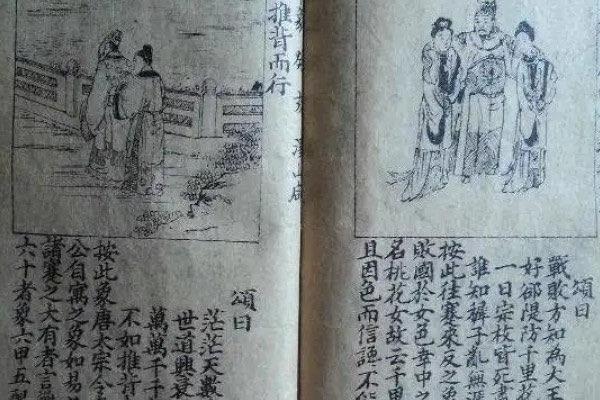 頌曰
戰敢方知為大王
好卻隄防千里花
一日宗枝皆死
誰知犢子亂無
按此往蹇來反之象
敗國於女色幸中之
名桃花女故云千里
且因色而信讒不能
推背而行
頌曰
茫茫天數
世道興衰
萬萬千千
不如推背
按此象唐太宗令
公自寓之象如易
諸蹇之大有者言
六十者 六甲五